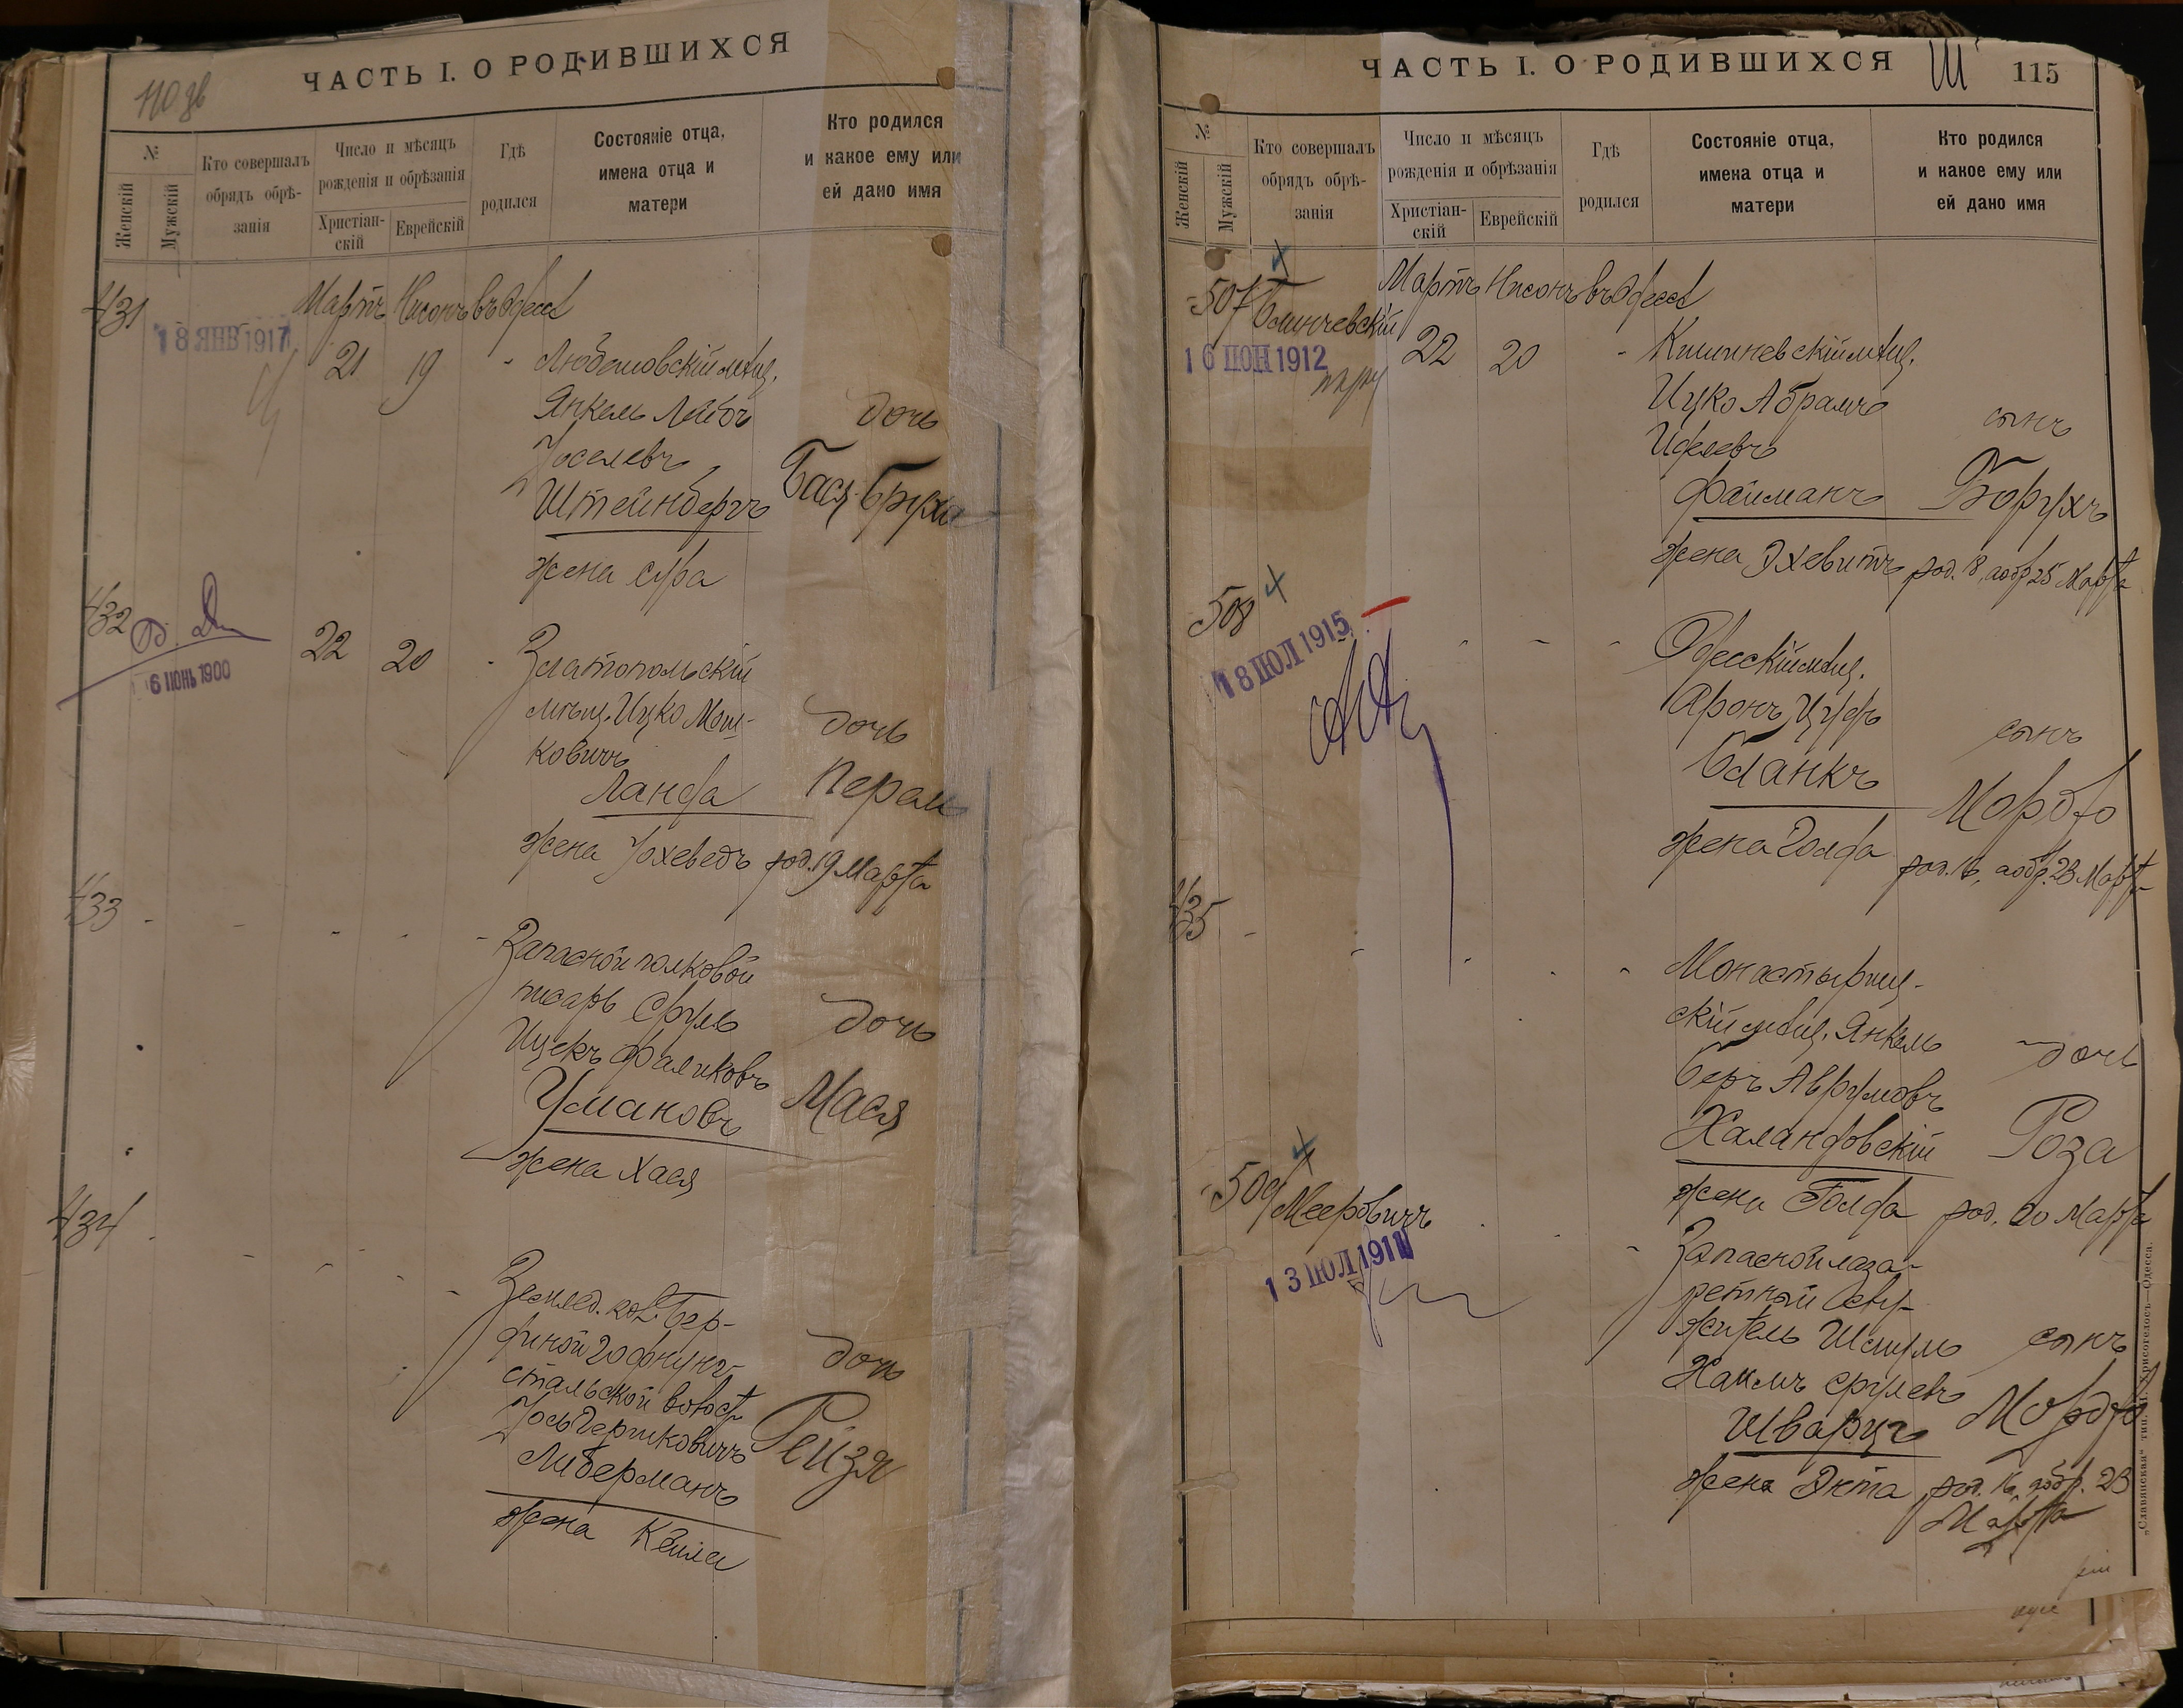 110 зв
ЧАСТЬ I. О РОДИВШИХСЯ
№
Женскій
Мужскій
Кто совершалъ
обрядъ обрѣ-
занія
Число и мѣсяцъ
рожденія и обрѣзанія
Христіан-
скій
Еврейскій
Гдѣ
родился
Состояніе отца,
имена отца и
матери
Кто родился
и какое ему или
ей дано имя
431
Мартъ Нисонъ въ Одессѣ
18 ЯНВ 1917
21 19 - Любашовскій мѣщ.
Янкель Лейбъ
дочь
Іоселевъ
Штейнбергъ
Бася-Бруха
жена Сура
432
6 ІЮНЬ 1900
22 20 - Златопольскій
мѣщ. Ицко Мош-
ковичъ
дочь
Ланда
Перель
жена Іохеведъ род. 19 Марта
433 - - - - -
Запасной полковой
писарь Сруль
дочь
Ицекъ Фаликовъ
Умановъ
Мася
жена Хася
434 - - - - -
Землед. кол. Бер-
финой Гофнунг-
стальской волост
дочь
Іось Гершковичъ
Либерманъ
Рейзя
жена Кейла
ЧАСТЬ I. О РОДИВШИХСЯ
Ш
115
№
Женскій
Мужскій
Кто совершалъ
обрядъ обрѣ-
занія
Число и мѣсяцъ
рожденія и обрѣзанія
Христіан-
скій
Еврейскій
Гдѣ
родился
Состояніе отца,
имена отца и
матери
Кто родился
и какое ему или
ей дано имя
507
Мартъ Нисонъ въ Одессѣ
16 ІЮН 1912
22 20 - Кишиневскій мѣщ.
Ицко Абрамъ
сынъ
Файманъ
Борухъ
жена Эхевитъ род. 18, а обр 25 Марта
508 - - -
18 ІЮЛ 1915
Одесскій мѣщ.
Аронъ Цуфъ
сынъ
Бланкъ
Мордко
жена Голда род. 16, а обр. 23 Марта
435 - - - - -
Монастырищ-
скій мѣщ. Янкель
дочь
Беръ Аврумовъ
Халандовскій
Роза
жена Голда род. 20 Марта
509 Мееровичъ
13 ІЮЛ 1911
Запасной лаза-
ретный слу-
житель Шмуль
сынъ
Хаимъ Срулевъ
Шварцъ
Мордко
жена Экта род. 16, а обр. 23
Марта
„Славянская“ тип. Н. Хрисогелосъ—Одесса.